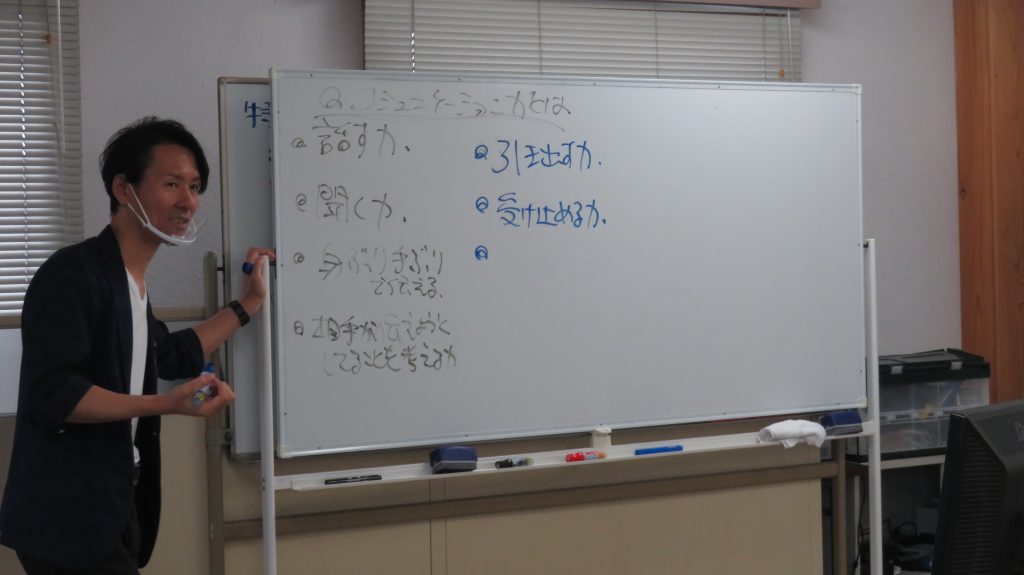 コミュニケーション力とは
話す力、
聞く力、
身ぶり手ぶり
で伝える、
相手が伝えようと
してることを考える力
引き出す力、
受け止める力、